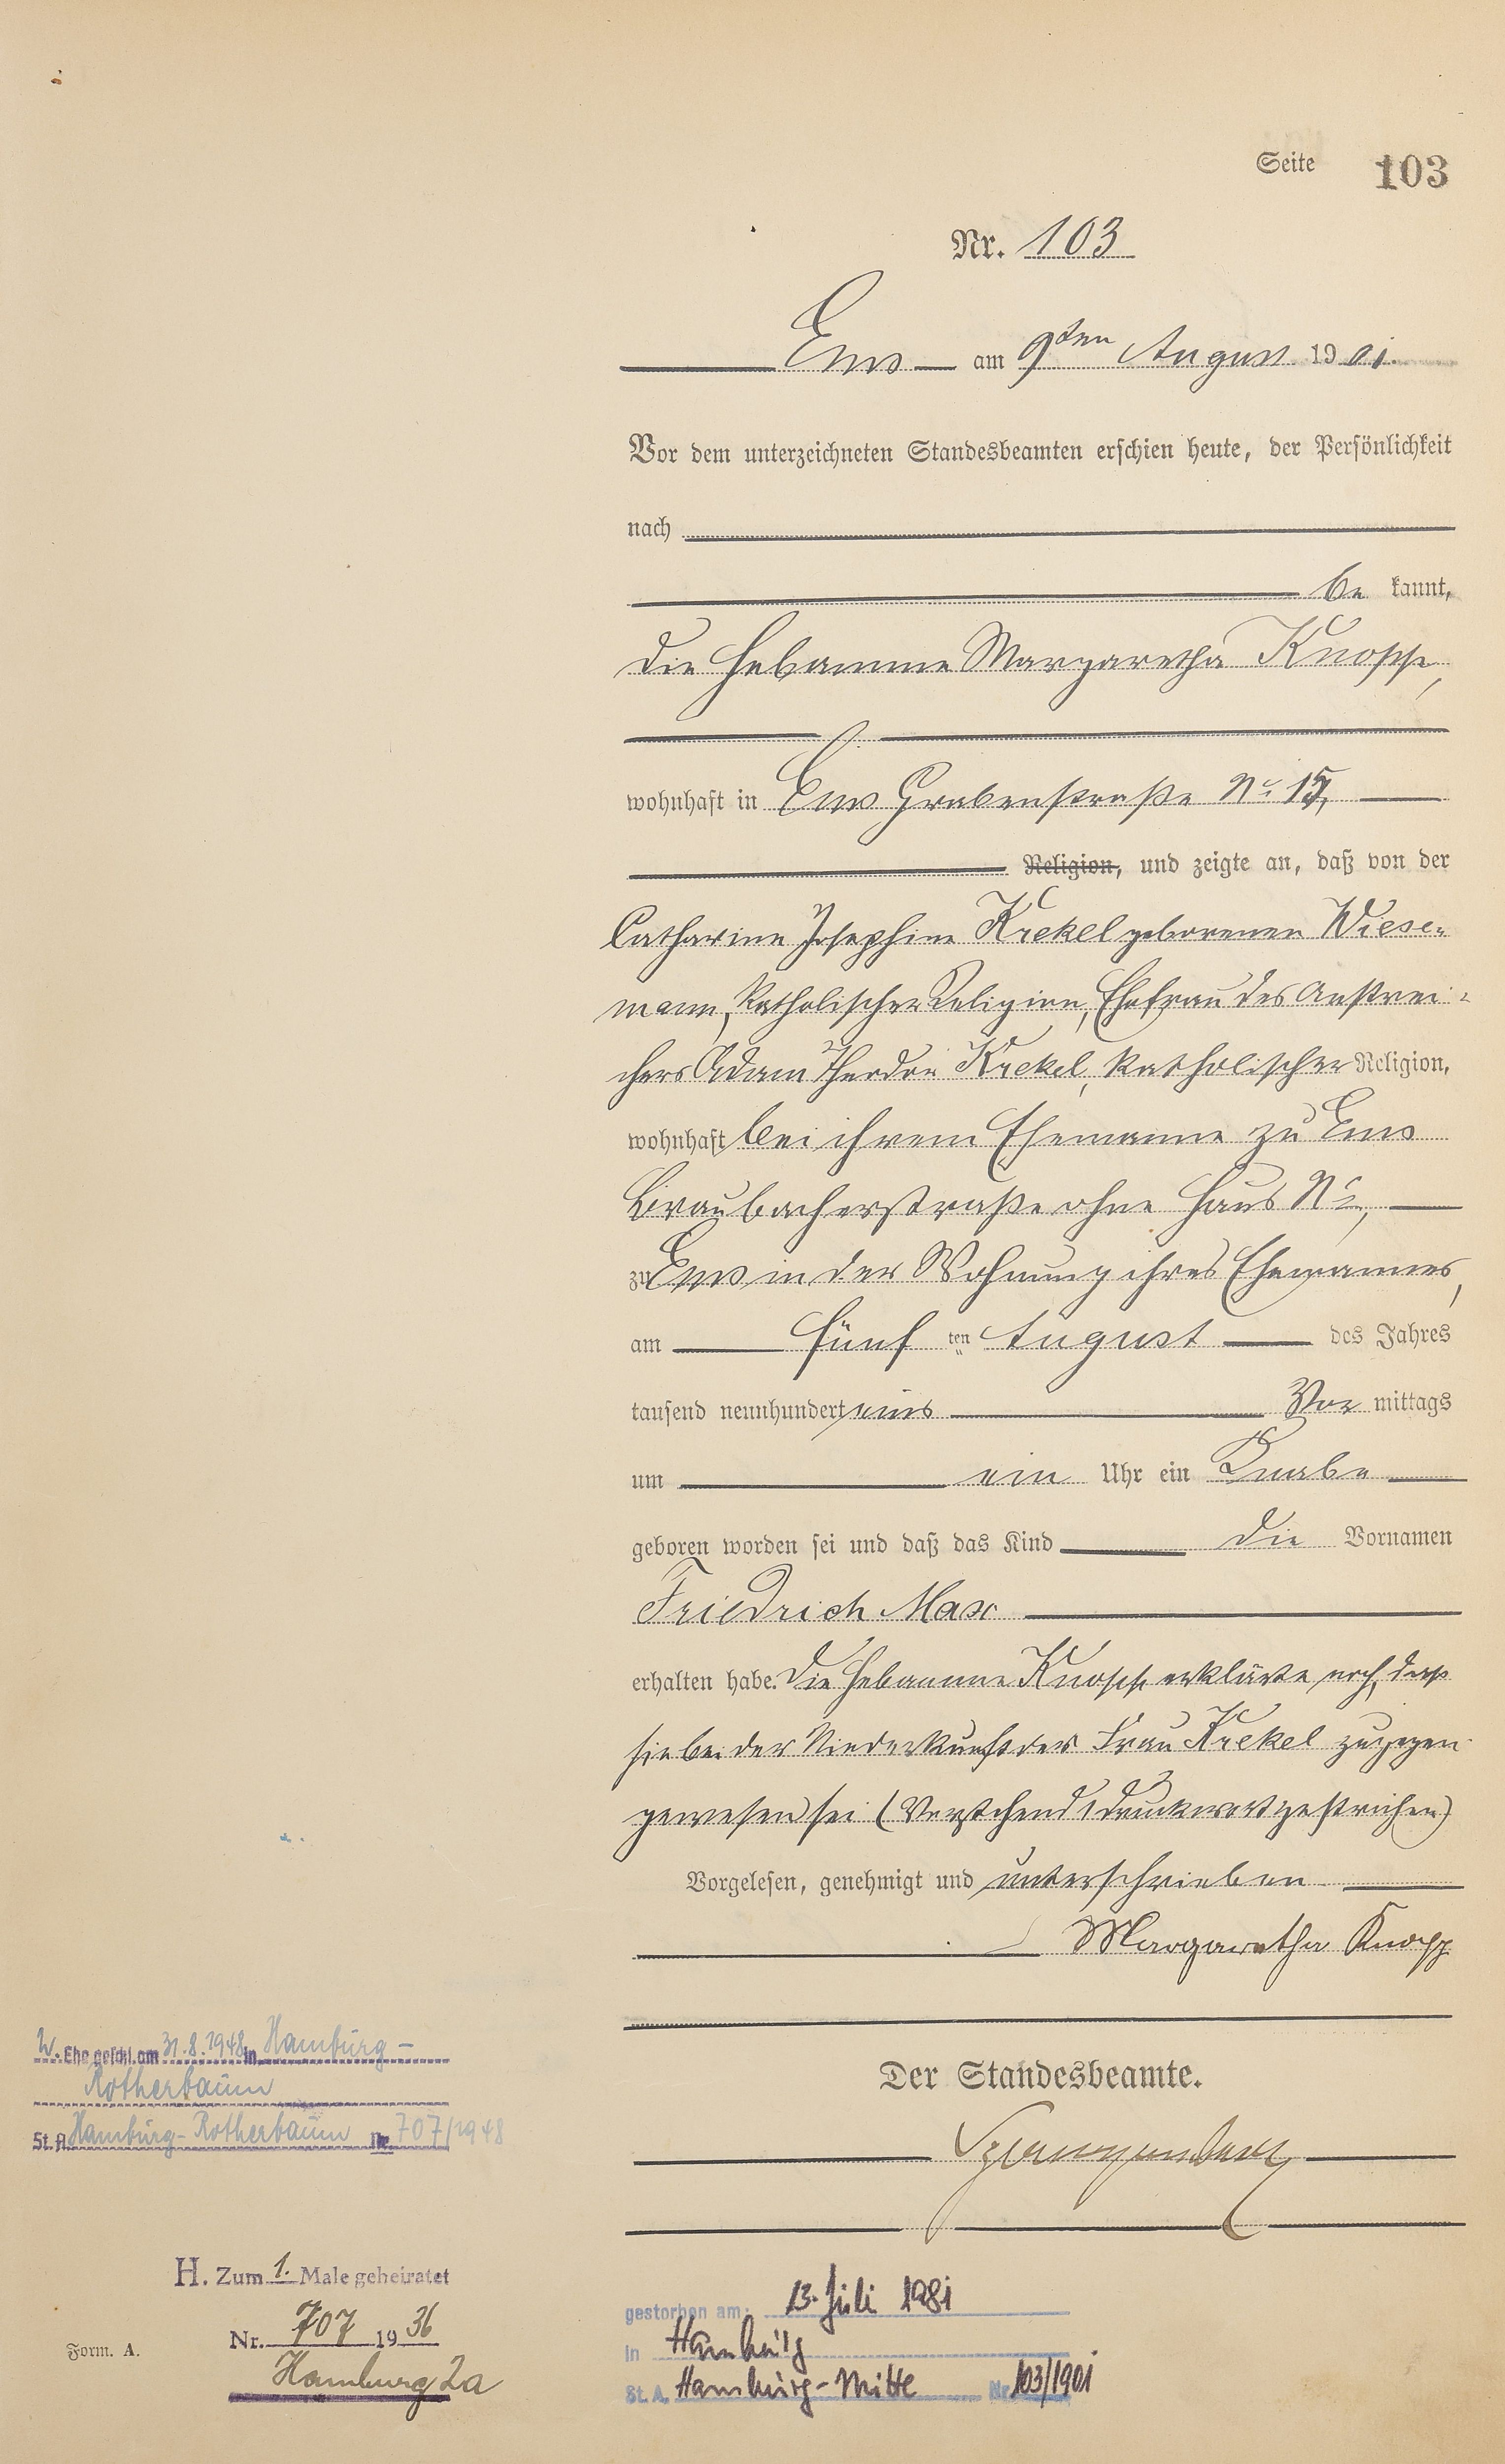 Seite 103
Nr. 103
Ems am 9ten August 1901.
Vor dem unterzeichneten Standesbeamten erschien heute, der Persönlichkeit
nach
be kannt,
die Hebamme Margaretha Knopp,
wohnhaft in Ems Grabenstraße No 15,
Religion, und zeigte an, daß von der
Catharine Josephine Krekel geborenen Wiese-
mann, katholischer Religion, Ehefrau des Anstrei-
chers Adam Theodor Krekel, katholischer Religion,
wohnhaft bei ihrem Ehemanne zu Ems
Braubacherstraße ohne Haus No,
zu Ems in der Wohnung ihres Ehemannes,
am fünf ten August des Jahres
tausend neunhundert eins Vor mittags
um ein Uhr ein Knabe
geboren worden sei und daß das Kind die Vornamen
Friedrich Max
erhalten habe. Die Hebamme Knopp erklärte noch, dass
sie bei der Niederkunft der Frau Krekel zugegen
gewesen sei (Vorstehend 1 Druckwort gestrichen)
Vorgelesen, genehmigt und unterschrieben
Margaretha Knopp
Der Standesbeamte.
W. Ehe geschl. am 31.8.1948 in Hamburg-
Rotherbaum
St. A. Hamburg-Rotherbaum Nr. 707/1948
H. Zum 1. Male geheiratet
Nr. 707 1936
Hamburg 2a
Form. A.
gestorben am: 13. Juli 1981
in Hamburg
St. A. Hamburg-Mitte Nr. 103/1901